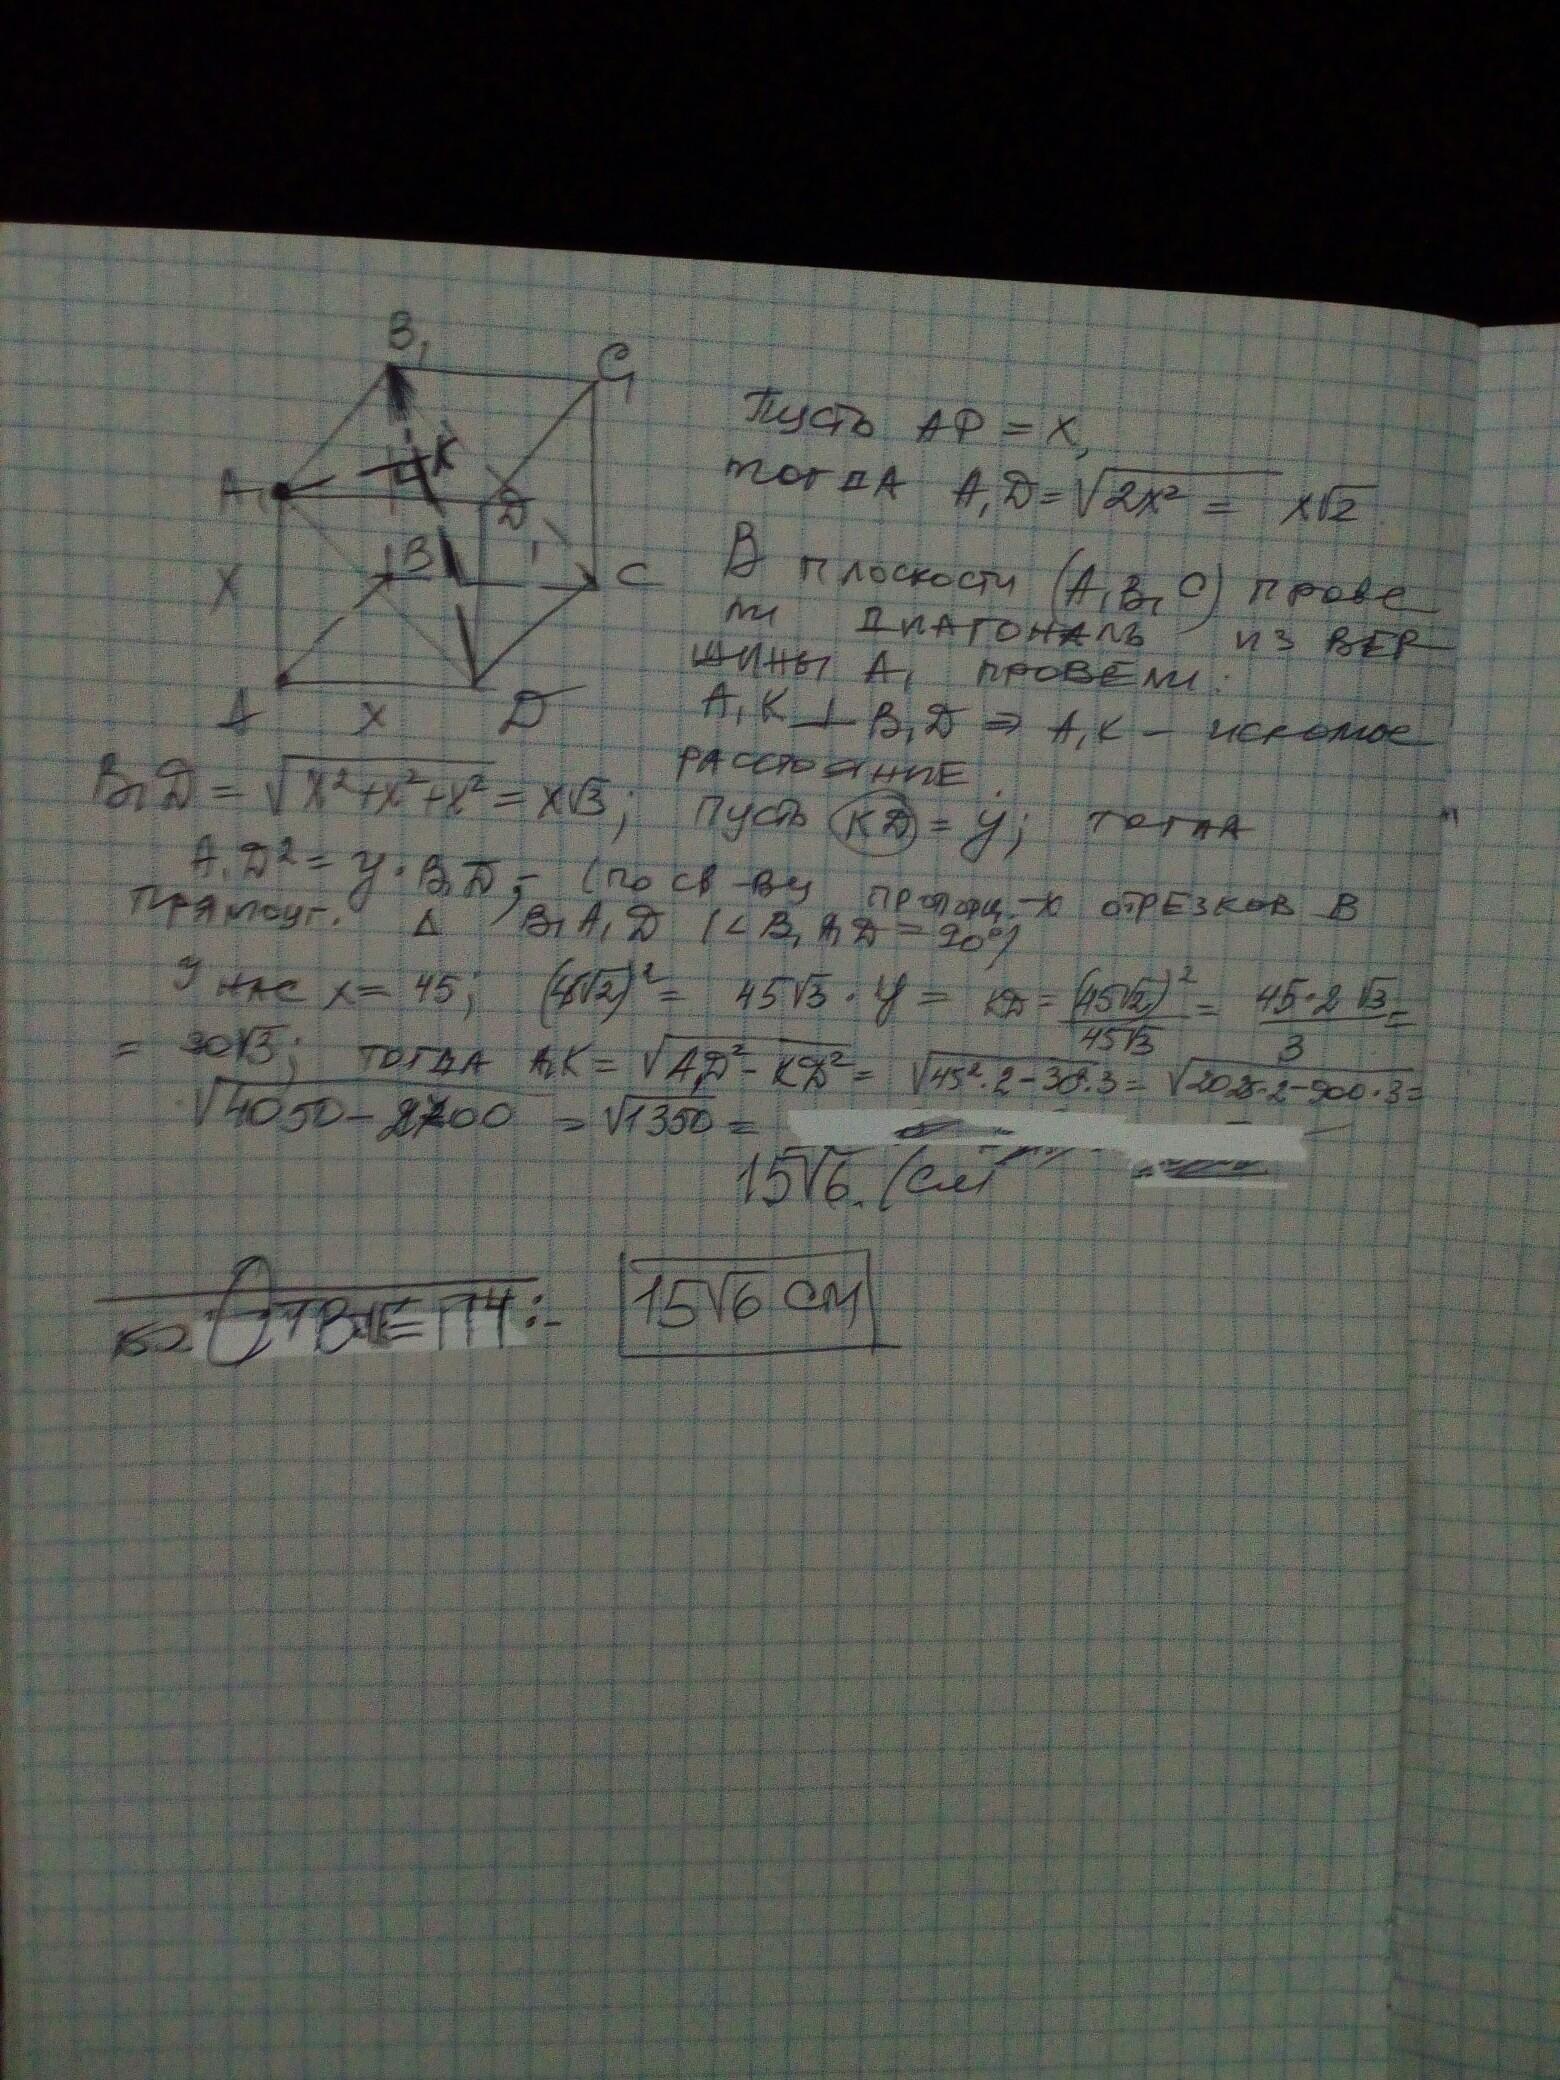 B₁
C₁
A₁
K
D₁
B
C
X
A
X
D
Пусть АD = X,
тогда A₁D = √2x² = x√2
В плоскости (A₁B₁C) прове
ли диагональ из вер
шины A₁ провели:
A₁K ⊥ B₁D ⇒ A₁K – искомое
расстояние.
B₁D = √x²+x²+x² = x√3; Пусть KD = y; тогда
A₁D² = y·B₁D; – (по св-ву пропорц.-х отрезков в
прямоуг. Δ B₁A₁D (∠B₁A₁D = 90°)
У нас x = 45; (45√2)² = 45√3 · y = KD = (45√2)²/45√3 = 45·2√3/3 =
= 30√3; тогда A₁K = √A₁D² – KD² = √45²·2 – 30²·3 = √2025·2 – 900·3 =
√4050 – 2700 = √1350 =
15√6. (см)
Ответ: – 15√6 см